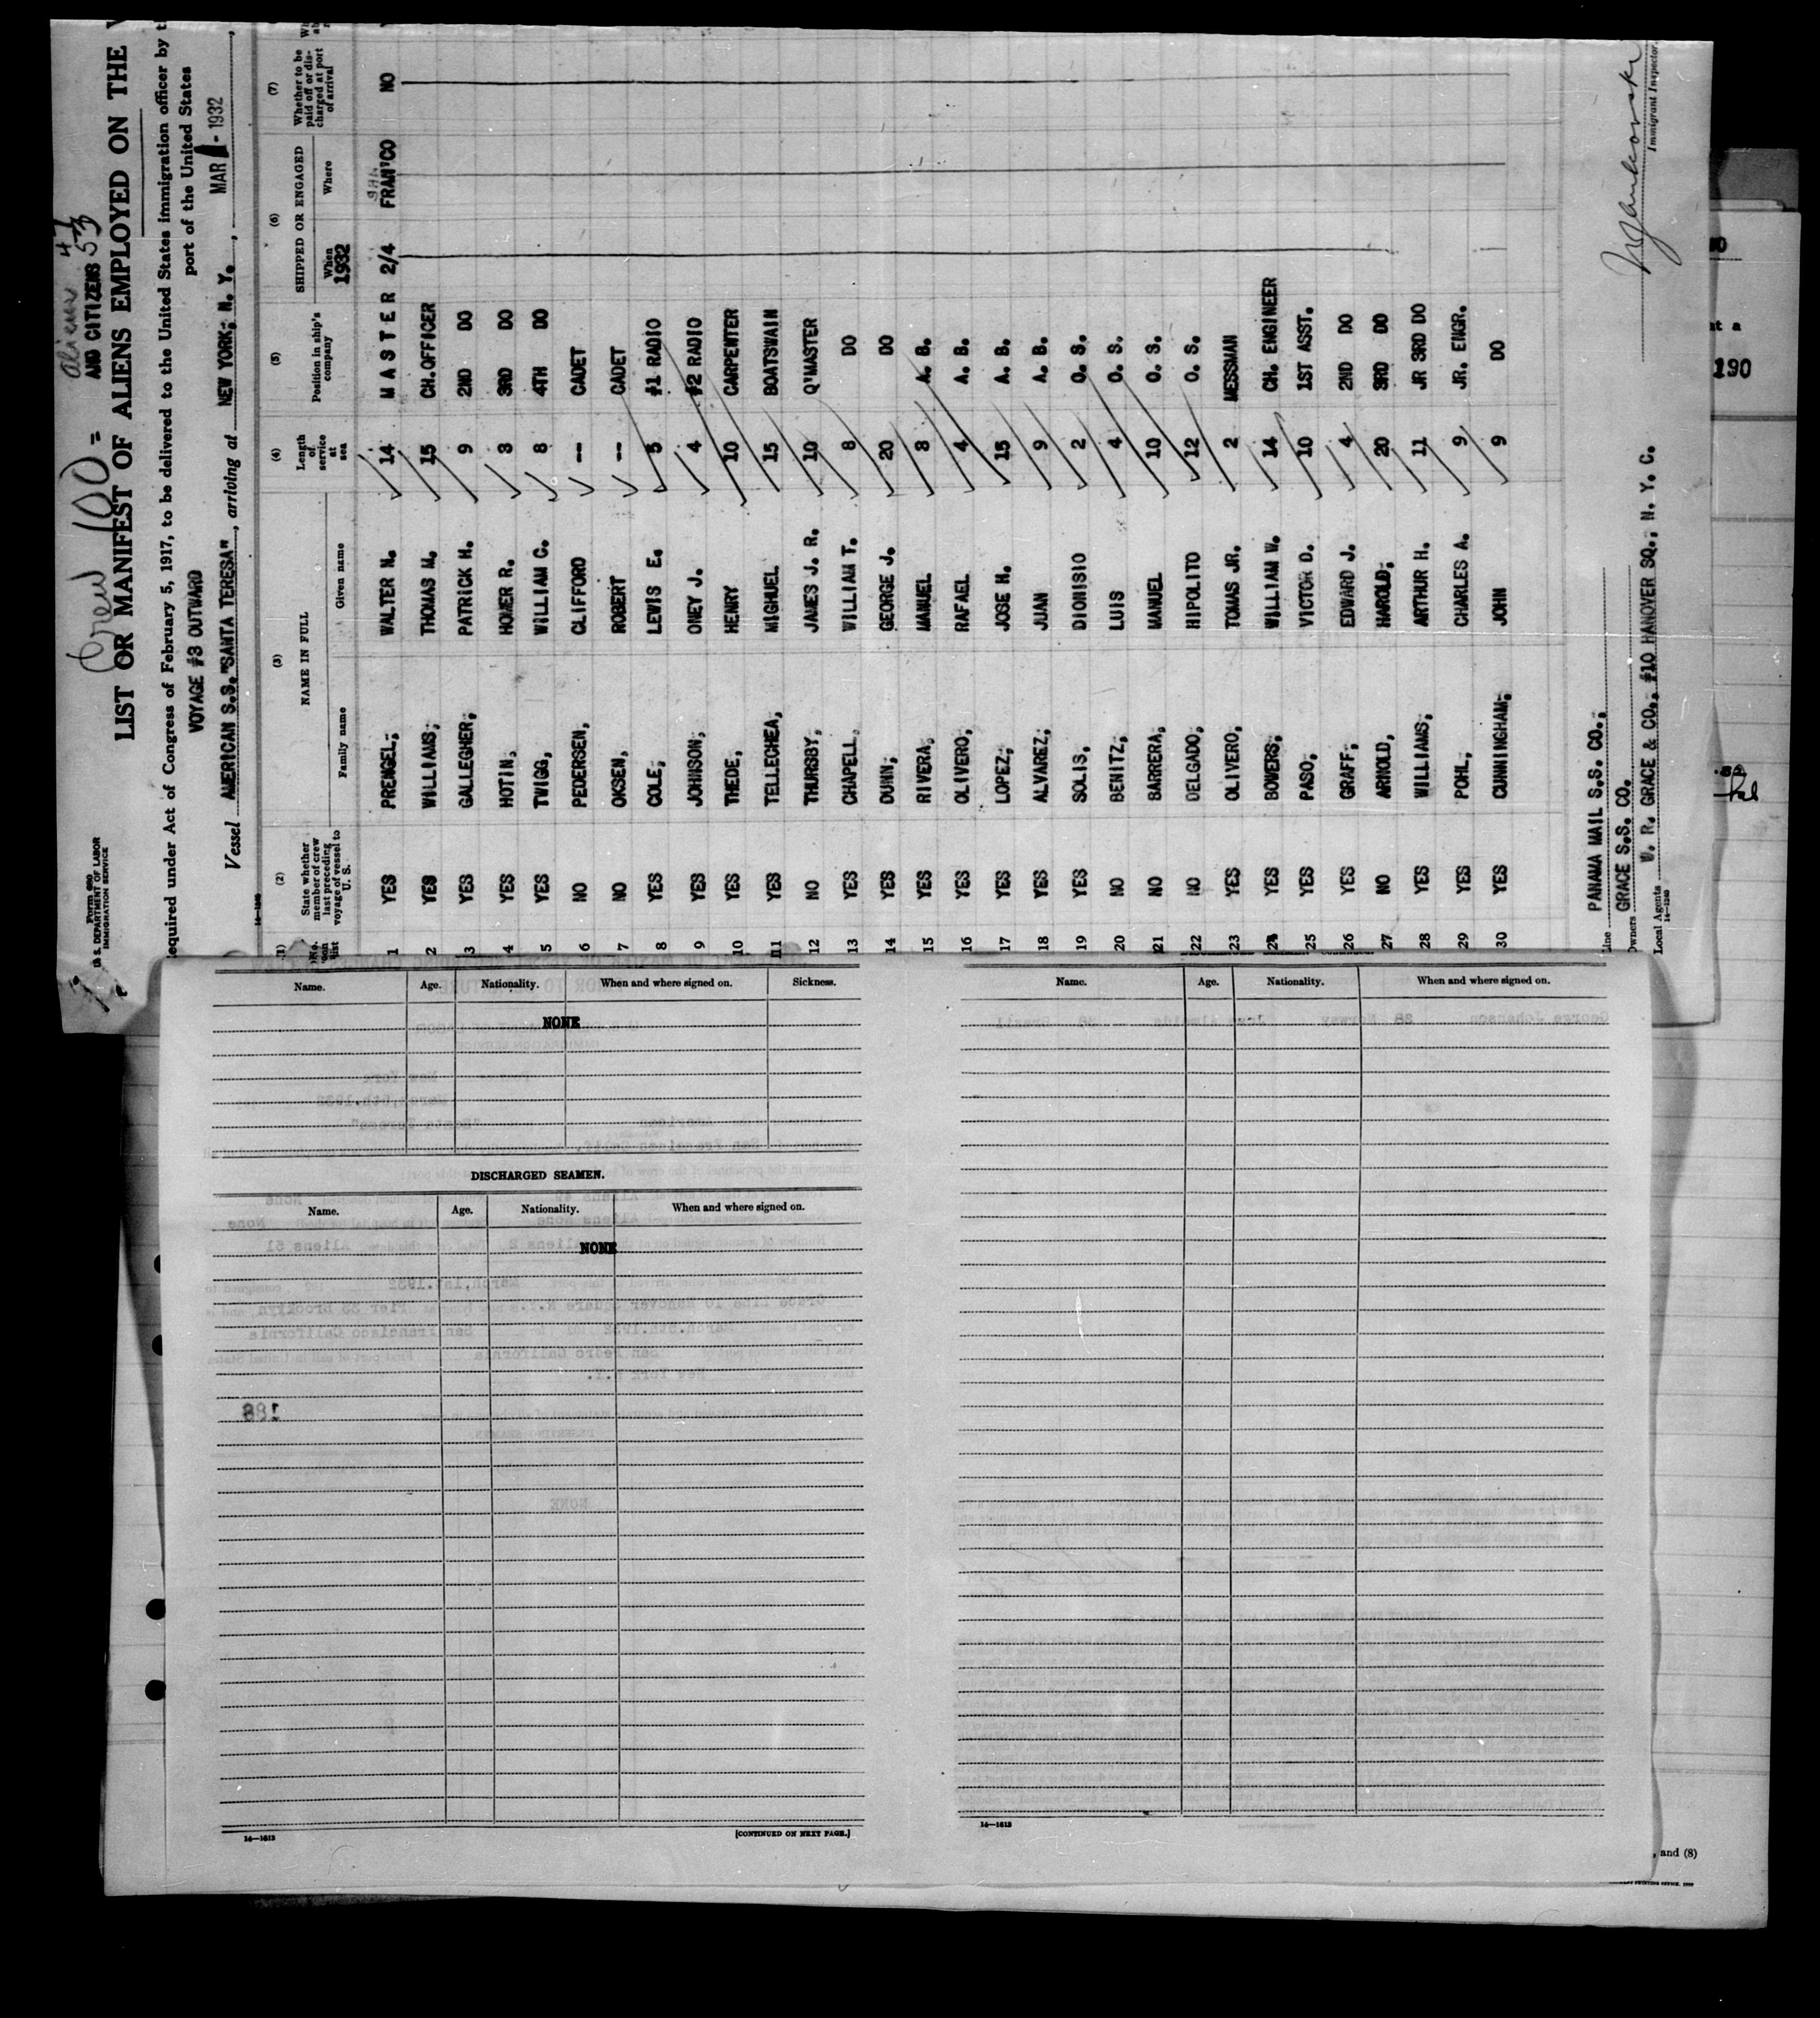 Form 680
U. S. DEPARTMENT OF LABOR
IMMIGRATION SERVICE
Crew 100 =
aliens 47
AND CITIZENS 53
LIST OR MANIFEST OF ALIENS EMPLOYED ON THE
equired under Act of Congress of February 5, 1917, to be delivered to the United States immigration officer by
port of the United States
VOYAGE #3 OUTWARD
Vessel AMERICAN S.S. "SANTA TERESA", arriving at NEW YORK, N. Y., MAR 1 - 1932,
(1) (2) (3) (4) (5) (6) (7)
State whether member of crew last preceding voyage of vessel to U. S.
NAME IN FULL
Family name Given name
Length of service at sea
Position in ship's company
SHIPPED OR ENGAGED
When Where
1932
Whether to be paid off or discharged at port of arrival
1 YES PRENGEL, WALTER N. 14 MASTER 2/4 SAN FRAN'CO NO
2 YES WILLIAMS, THOMAS M. 15 CH.OFFICER
3 YES GALLEGHER, PATRICK H. 9 2ND DO
4 YES HOTIN, HOMER R. 3 3RD DO
5 YES TWIGG, WILLIAM C. 8 4TH DO
6 NO PEDERSEN, CLIFFORD -- CADET
7 NO OKSEN, ROBERT -- CADET
8 YES COLE, LEWIS E. 5 #1 RADIO
9 YES JOHNSON, ONEY J. 4 #2 RADIO
10 YES THEDE, HENRY 10 CARPENTER
11 YES TELLECHEA, MIGHUEL 15 BOATSWAIN
12 NO THURSBY, JAMES J. R. 10 Q'MASTER
13 YES CHAPELL, WILLIAM T. 8 DO
14 YES DUNN, GEORGE J. 20 DO
15 YES RIVERA, MANUEL 8 A. B.
16 YES OLIVERO, RAFAEL 4 A. B.
17 YES LOPEZ, JOSE H. 15 A. B.
18 YES ALVAREZ, JUAN 9 A. B.
19 YES SOLIS, DIONISIO 2 O. S.
20 NO BENITZ, LUIS 4 O. S.
21 NO BARRERA, MANUEL 10 O. S.
22 NO DELGADO, HIPOLITO 12 O. S.
23 YES OLIVERO, TOMAS JR. 2 MESSMAN
24 YES BOWERS, WILLIAM W. 14 CH. ENGINEER
25 YES PASO, VICTOR D. 10 1ST ASST.
26 YES GRAFF, EDWARD J. 4 2ND DO
27 NO ARNOLD, HAROLD, 20 3RD DO
28 YES WILLIAMS, ARTHUR H. 11 JR 3RD DO
29 YES POHL, CHARLES A. 9 JR. ENGR.
30 YES CUNNINGHAM, JOHN 9 DO
Line PANAMA MAIL S.S. CO.,
Owners GRACE S.S. CO.
Local Agents W. R. GRACE & CO., #10 HANOVER SQ., N. Y. C.
14-1240
Immigrant Inspector.
Name. Age. Nationality. When and where signed on. Sickness.
NONE
DISCHARGED SEAMEN.
Name. Age. Nationality. When and where signed on.
NONE
188
14-1613 [CONTINUED ON NEXT PAGE.]
Name. Age. Nationality. When and where signed on.
14-1613
at a
190
, and (8)